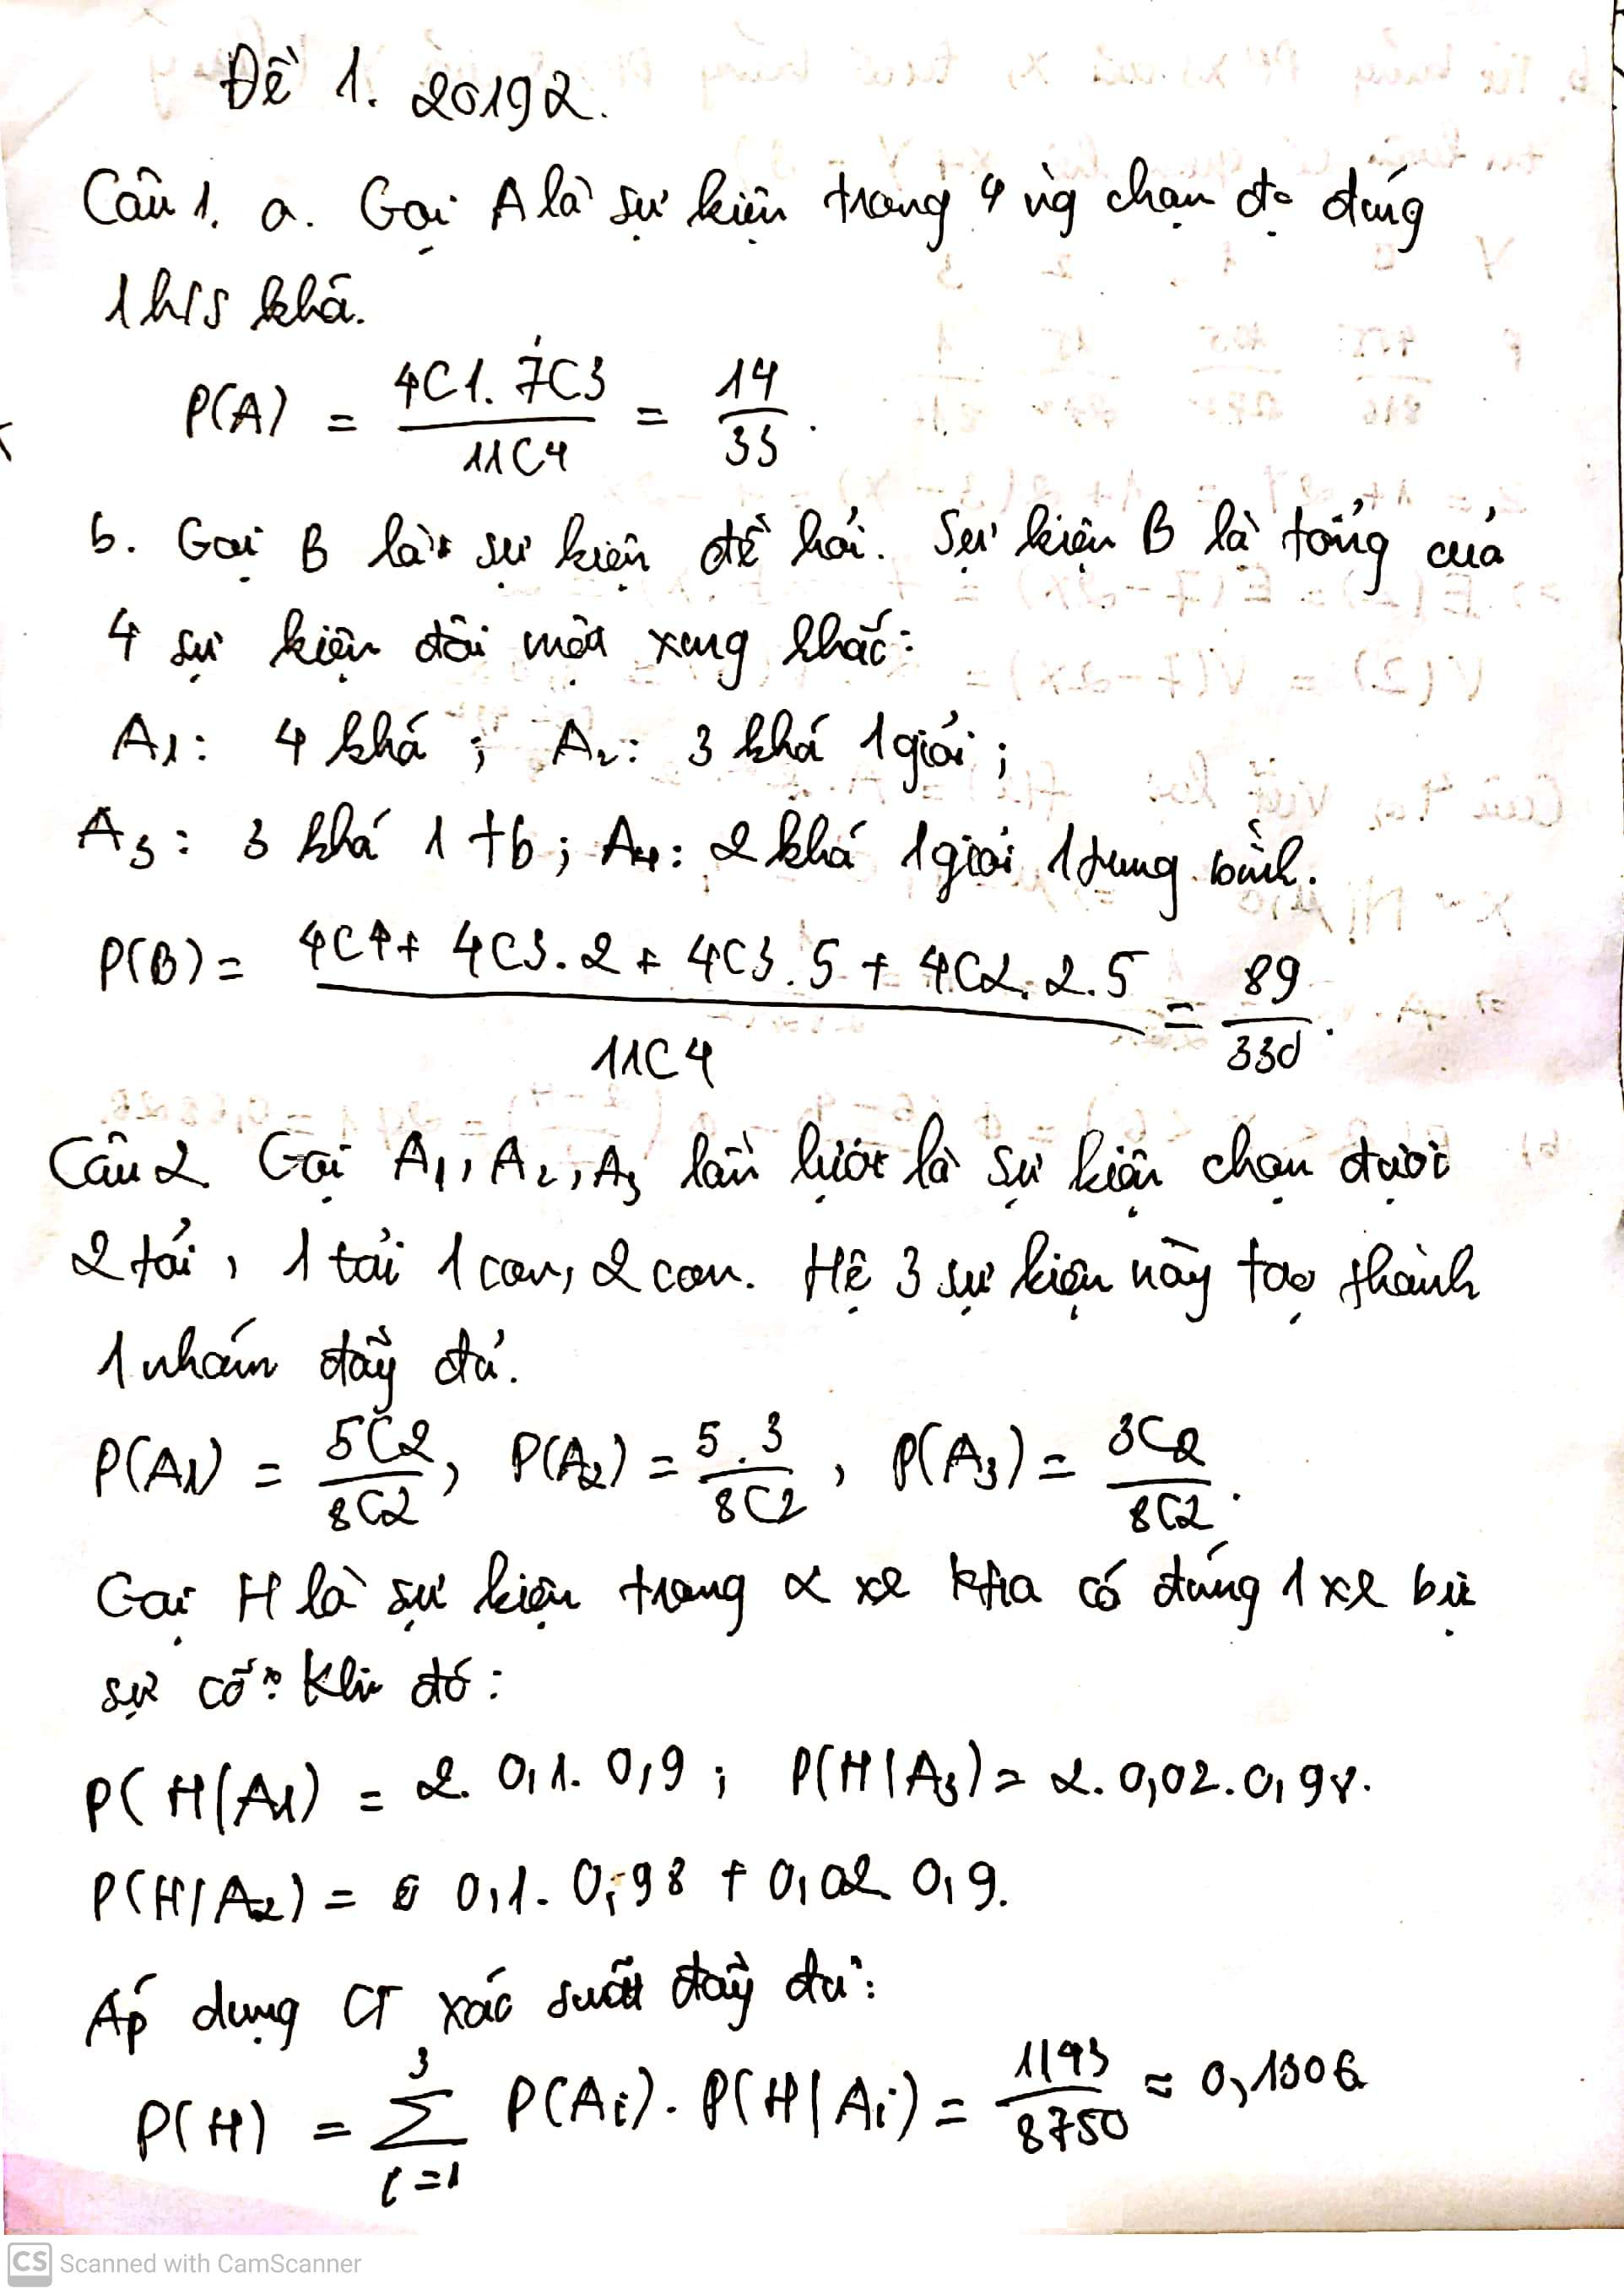 Đề 1. 20192.
Câu 1. a. Gọi A là sự kiện trong 4 ng chọn đc đúng
1 h/s khá.
P(A) = 4C1. 7C3 / 11C4 = 14/33.
b. Gọi B là sự kiện đề hỏi. Sự kiện B là tổng của
4 sự kiện đôi một xung khắc:
A1: 4 khá; A2: 3 khá 1 giỏi;
A3: 3 khá 1 tb; A4: 2 khá 1 giỏi 1 trung bình.
P(B) = 4C4 + 4C3.2 + 4C3.5 + 4C2.2.5 / 11C4 = 89/330.
Câu 2. Gọi A1, A2, A3 lần lượt là sự kiện chọn được
2 tải, 1 tải 1 con, 2 con. Hệ 3 sự kiện này tạo thành
1 nhóm đầy đủ.
P(A1) = 5C2/8C2, P(A2) = 5.3/8C2, P(A3) = 3C2/8C2.
Gọi H là sự kiện trong 2 xe ktra có đúng 1 xe bị
sự cố. Khi đó:
P(H|A1) = 2. 0,1. 0,9; P(H|A3) = 2. 0,02. 0,98.
P(H|A2) = 0,1. 0,98 + 0,02. 0,9.
Áp dụng CT xác suất đầy đủ:
P(H) = 3 Σ i=1 P(Ai). P(H|Ai) = 1143/8750 ≈ 0,1306
CS Scanned with CamScanner